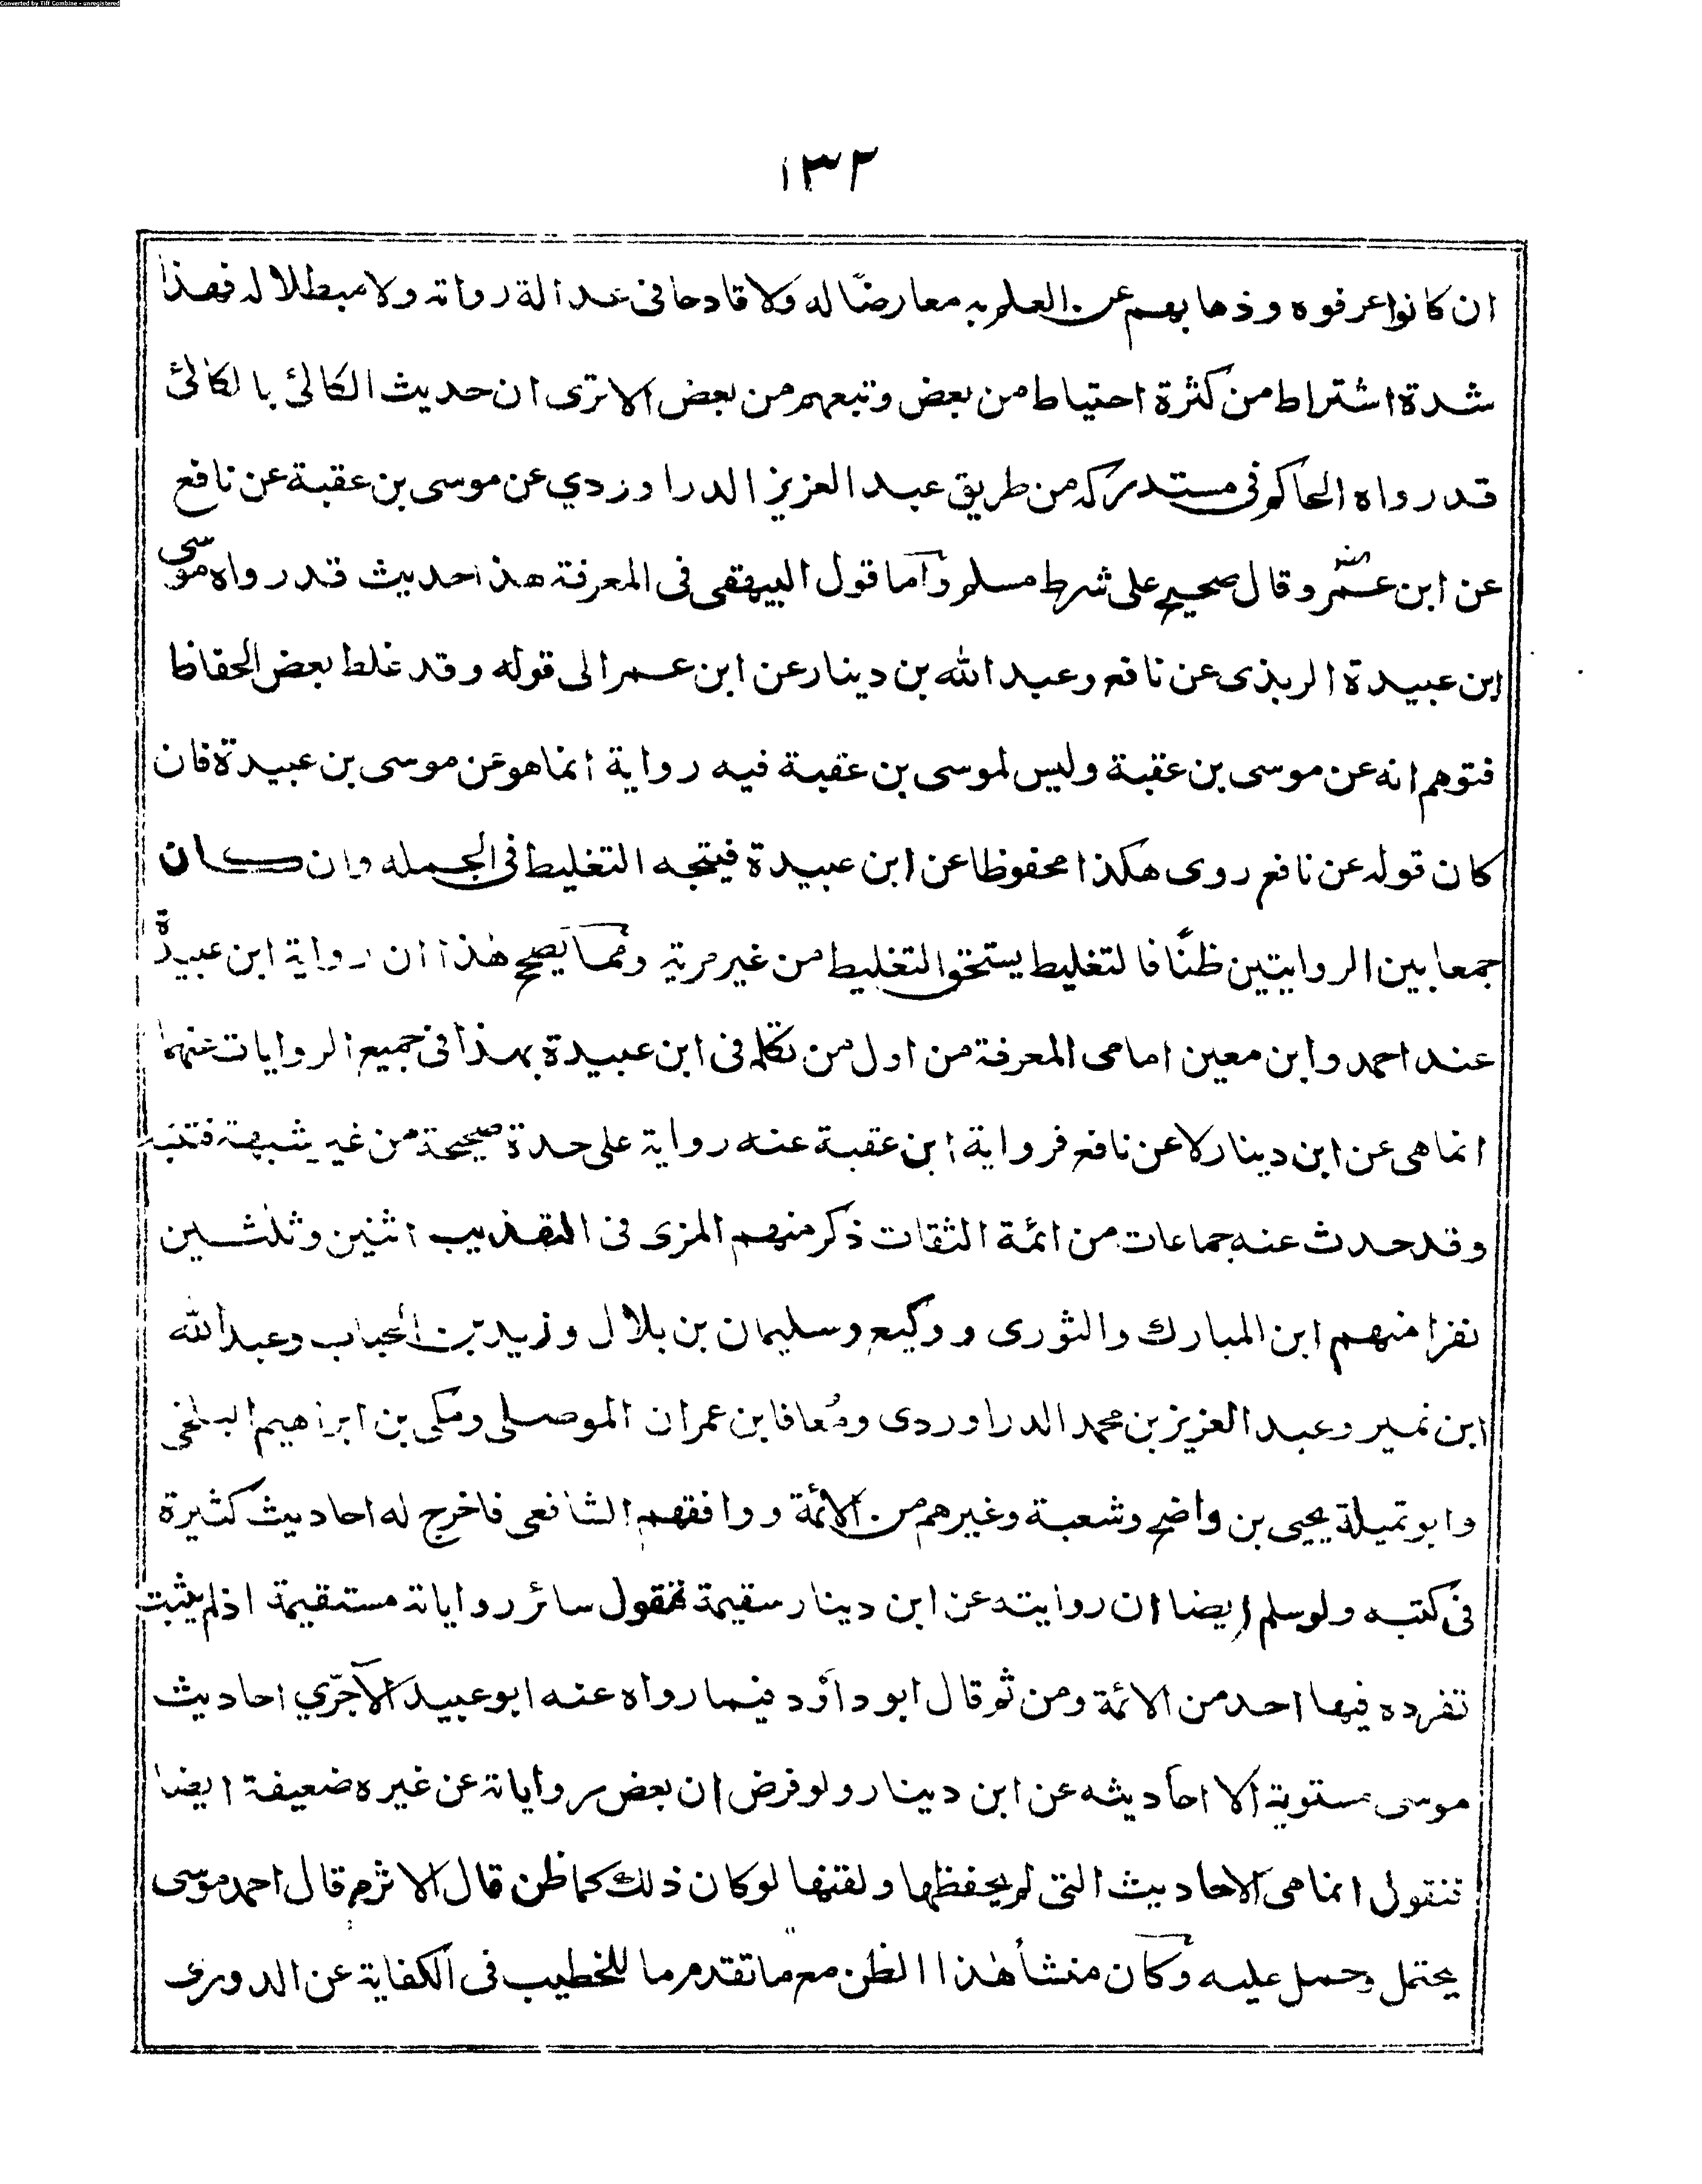 Converted by Tiff Combine - unregistered
١٣٢
ان كانوا عرفوه وذهابهم عن العلم به معارضًا له ولا قادحا فى عدالة رواته ولا مبطلا له فهذا
شدة اشتراط من كثرة احتياط من بعض وتبعهم من بعض الا ترى ان حديث الكالئ بالكالئ
قد رواه الحاكم فى مستدركه من طريق عبد العزيز الدراوردي عن موسى بن عقبة عن نافع
عن ابن عمر وقال صحيح على شرط مسلم وآما قول البيهقى فى المعرفة هذا حديث قد رواه موسى
ابن عبيدة الربذى عن نافع وعبد الله بن دينار عن ابن عمر الى قوله وقد غلط بعض الحفاظ
فتوهم انه عن موسى بن عقبة وليس لموسى بن عقبة فيه رواية انما هو عن موسى بن عبيدة فان
كان قوله عن نافع روى هكذا محفوظا عن ابن عبيدة فيتجه التغليط فى الجمله وان كان
جمعا بين الروايتين ظنًا فالتغليط يستحق التغليط من غير مرية ومما يصحح هذا ان رواية ابن عبيدة
عند احمد وابن معين امامى المعرفة من اول من تكلم فى ابن عبيدة بهذا فى جميع الروايات عنهما
انما هى عن ابن دينار لا عن نافع فرواية ابن عقبة عنه رواية على حدة صحيحة من غير شبهة فتنبه
وقد حدث عنه جماعات من ائمة الثقات ذكر منهم المزى فى التهذيب اثنين وثلثين
نفرا منهم ابن المبارك والثورى ووكيع وسليمان بن بلال وزيد بن الحباب وعبد الله
ابن نمير وعبد العزيز بن محمد الدراوردى ومُعافا بن عمران الموصلى ومكى بن ابراهيم البلخى
وابو تميلة يحيى بن واضح وشعبة وغيرهم من الأئمة ووافقهم الشافعى فاخرج له احاديث كثيرة
فى كتبه ولو سلم ايضا ان روايته عن ابن دينار سقيمة فنقول سائر رواياته مستقيمة اذ لم يثبت
تفرده فيها احد من الائمة ومن ثم قال ابو داؤد فيما رواه عنه ابو عبيد الآجرّي احاديث
موسى مستوية الا احاديثه عن ابن دينار ولو فرض ان بعض رواياته عن غيره ضعيفة ايضا
فنقول انما هى الاحاديث التى لم يحفظها ولقنها لو كان ذلك كما ظن قال الاثرم قال احمد موسى
يحتمل وحمل عليه وكان منشأ هذا الظن مع ما تقدم ما للخطيب فى الكفاية عن الدورى